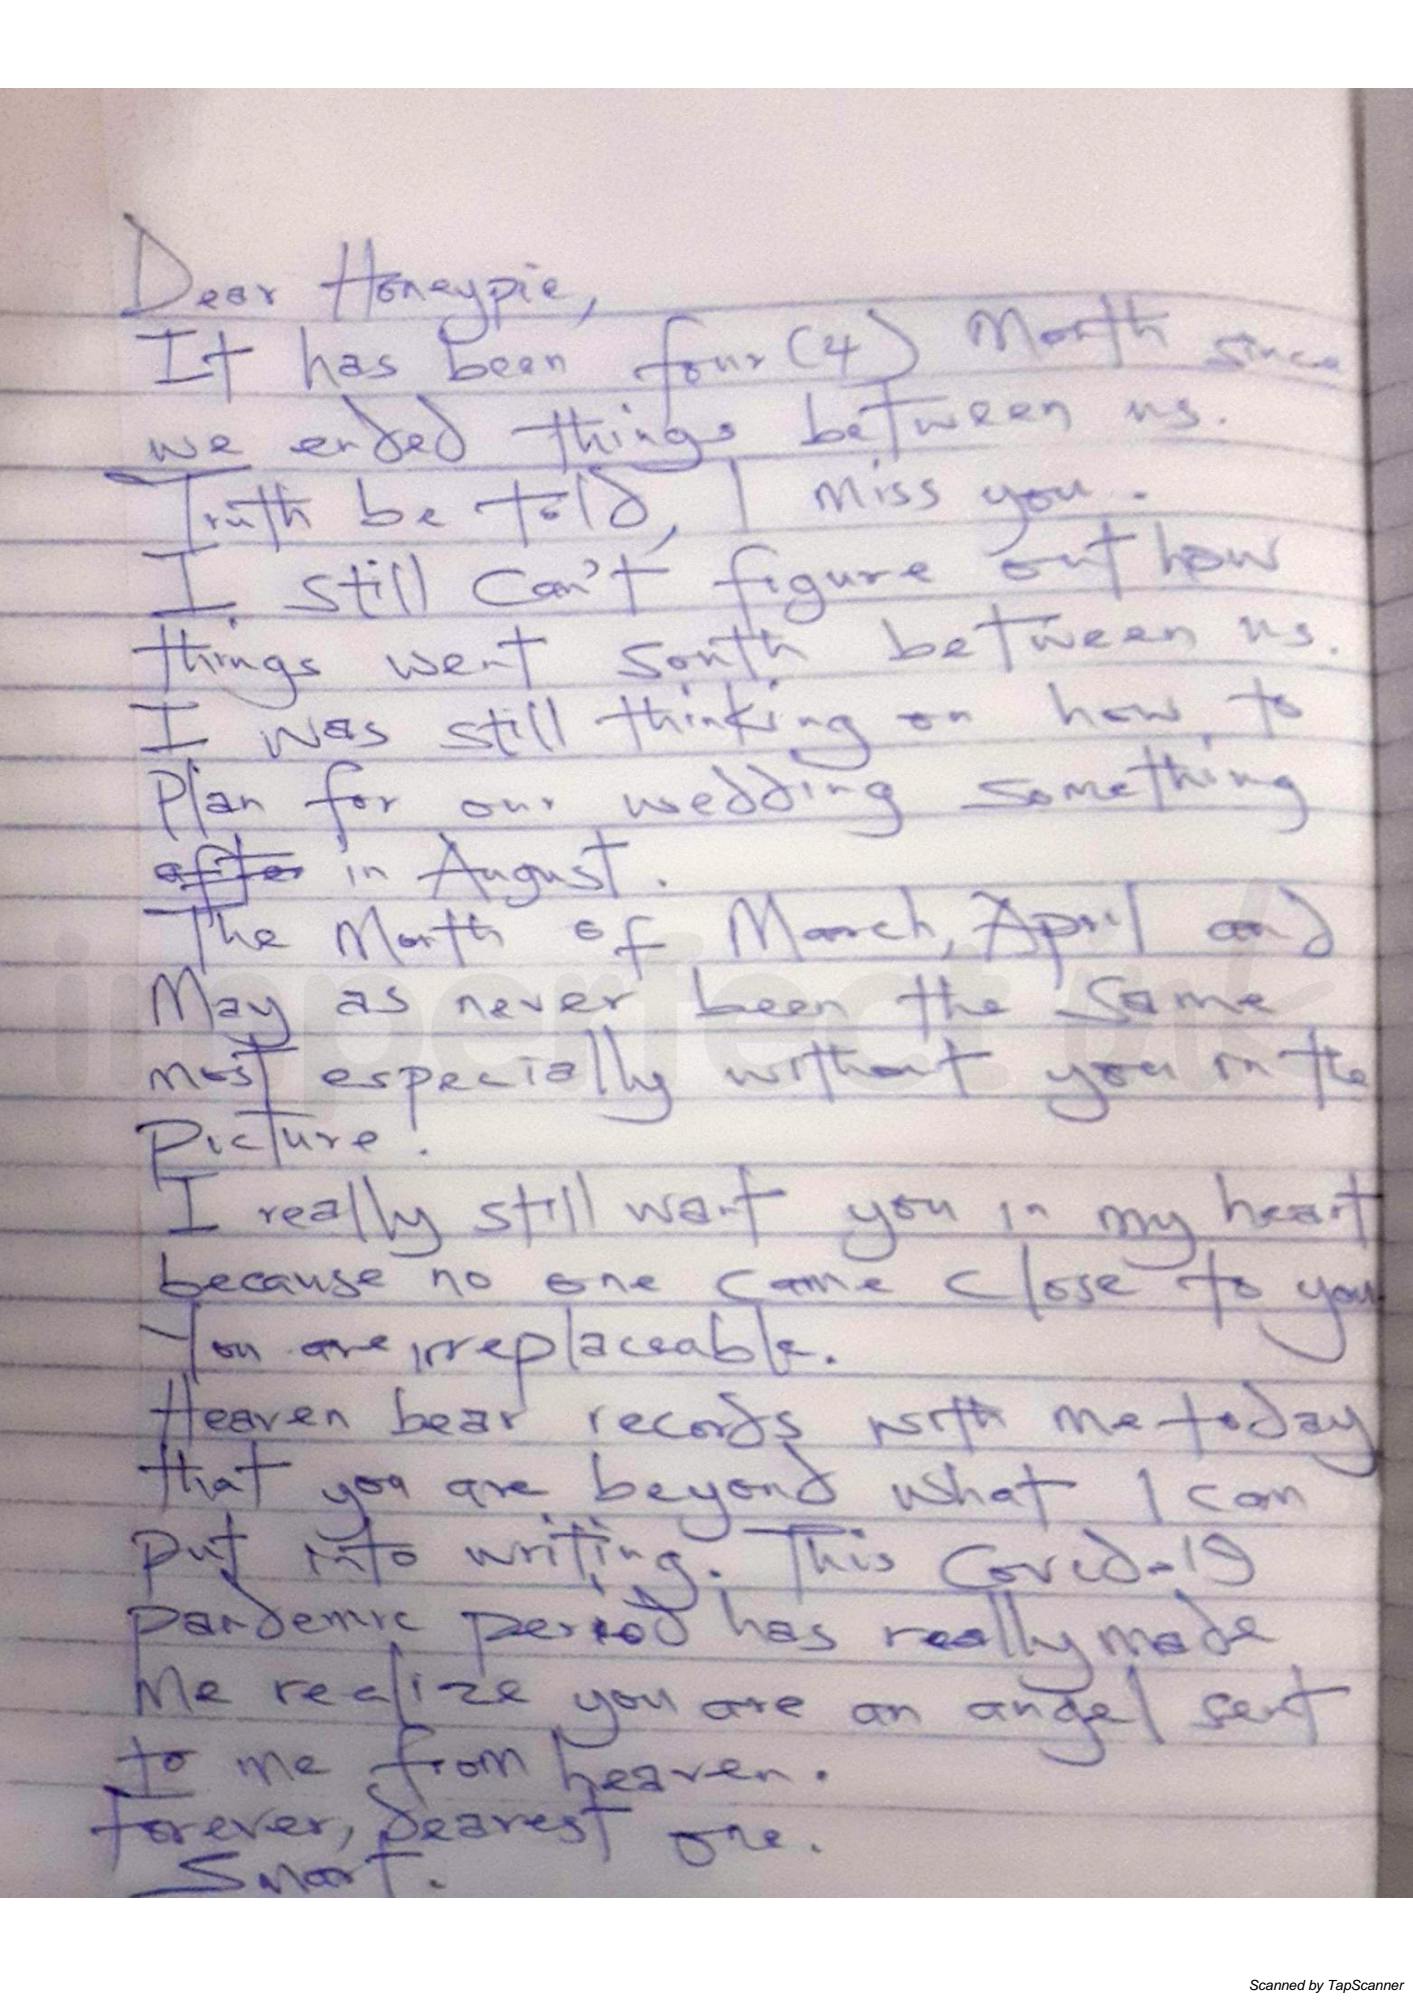 Dear Honeypie,
It has been four (4) Month since
we ended things between us.
Truth be told, I miss you.
I still can't figure out how
things went south between us.
I was still thinking on how to
Plan for our wedding something
after in August.
The Month of March, April and
May as never been the same
most especially without you in the
Picture.
I really still want you in my heart
because no one came close to you
You are irreplaceable.
Heaven bear records with me today
that you are beyond what I can
put into writing. This Covid-19
pandemic period has really made
me realize you are an angel sent
to me from heaven.
Forever, dearest one.
Smart.
imperfect ink
Scanned by TapScanner